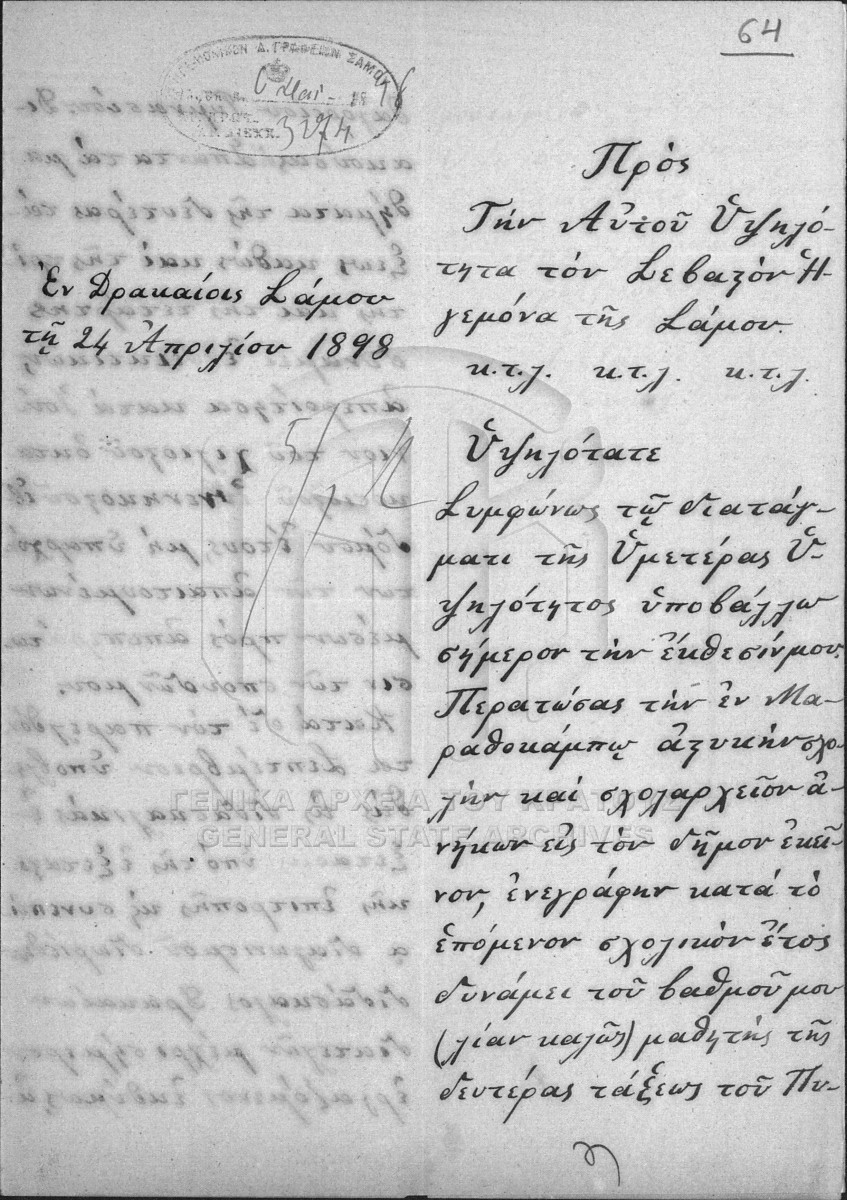 64
ΗΓΕΜΟΝΙΚΟΝ Δ. ΓΡΑΦΕΙΟΝ ΣΑΜΟΥ
6 Μαΐ 1898
3274
Ἐν Δρακαίοις Σάμου
τῇ 24 Ἀπριλίου 1898
Πρὸς
Τὴν Αὐτοῦ Ὑψηλό-
τητα τὸν Σεβαστὸν Ἡ-
γεμόνα τῆς Σάμου.
κ.τ.λ. κ.τ.λ. κ.τ.λ.
Ὑψηλότατε
Συμφώνως τῷ διατάγ-
ματι τῆς Ὑμετέρας Ὑ-
ψηλότητος ὑποβάλλω
σήμερον τὴν ἔκθεσίν μου.
Περατώσας τὴν ἐν Μα-
ραθοκάμπῳ ἀστικὴν σχο-
λὴν καὶ σχολαρχεῖον ἀ-
νήκων εἰς τὸν δῆμον ἐκεῖ-
νον, ἐνεγράφην κατὰ τὸ
ἑπόμενον σχολικὸν ἔτος
δυνάμει τοῦ βαθμοῦ μου
(λίαν καλῶς) μαθητὴς τῆς
δευτέρας τάξεως τοῦ Πυ-
ΓΕΝΙΚΑ ΑΡΧΕΙΑ ΤΟΥ ΚΡΑΤΟΥΣ
GENERAL STATE ARCHIVES